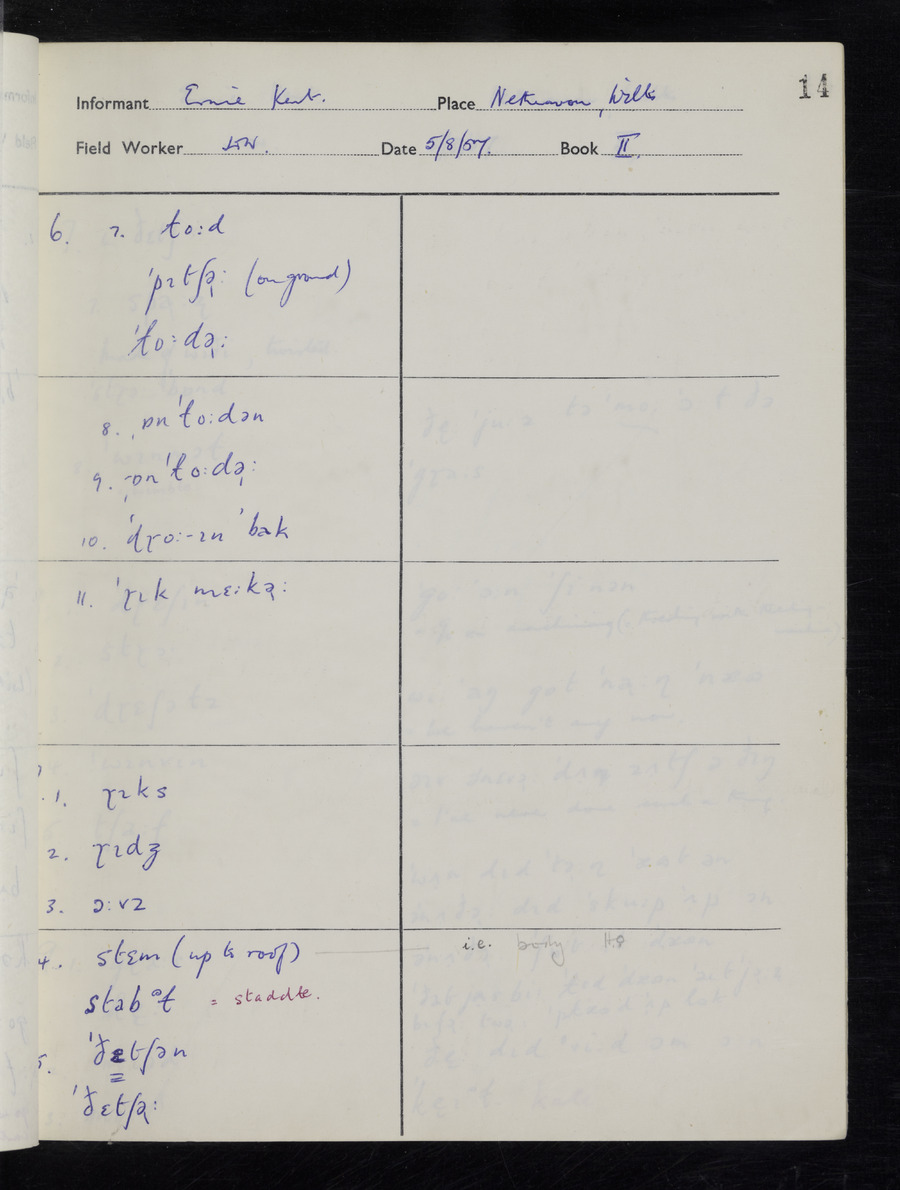 14
Informant Ernie Kent. Place Netheravon, Wilts
Field Worker Date 5/8/57. Book II.
6. 7. ɫo:d
ˈpɪtʃə̢: (on ground)
ˈɫo:də̢:
8. ˌɒnˈɫo:dən
9. ˌɒnˈɫo:də̢:
10. ˈdɼo:-ɪn ˈbak
11. ˈɼɪk mɛ:kə̢:
7
1. ɼɪks
2. ɼɪdʒ
3. ɔ:vz
4. stɛm (up to roof) i.e. body
stabᵊɫ = staddle.
5. ˈðɛtʃən
ˈðɛtʃə̢: